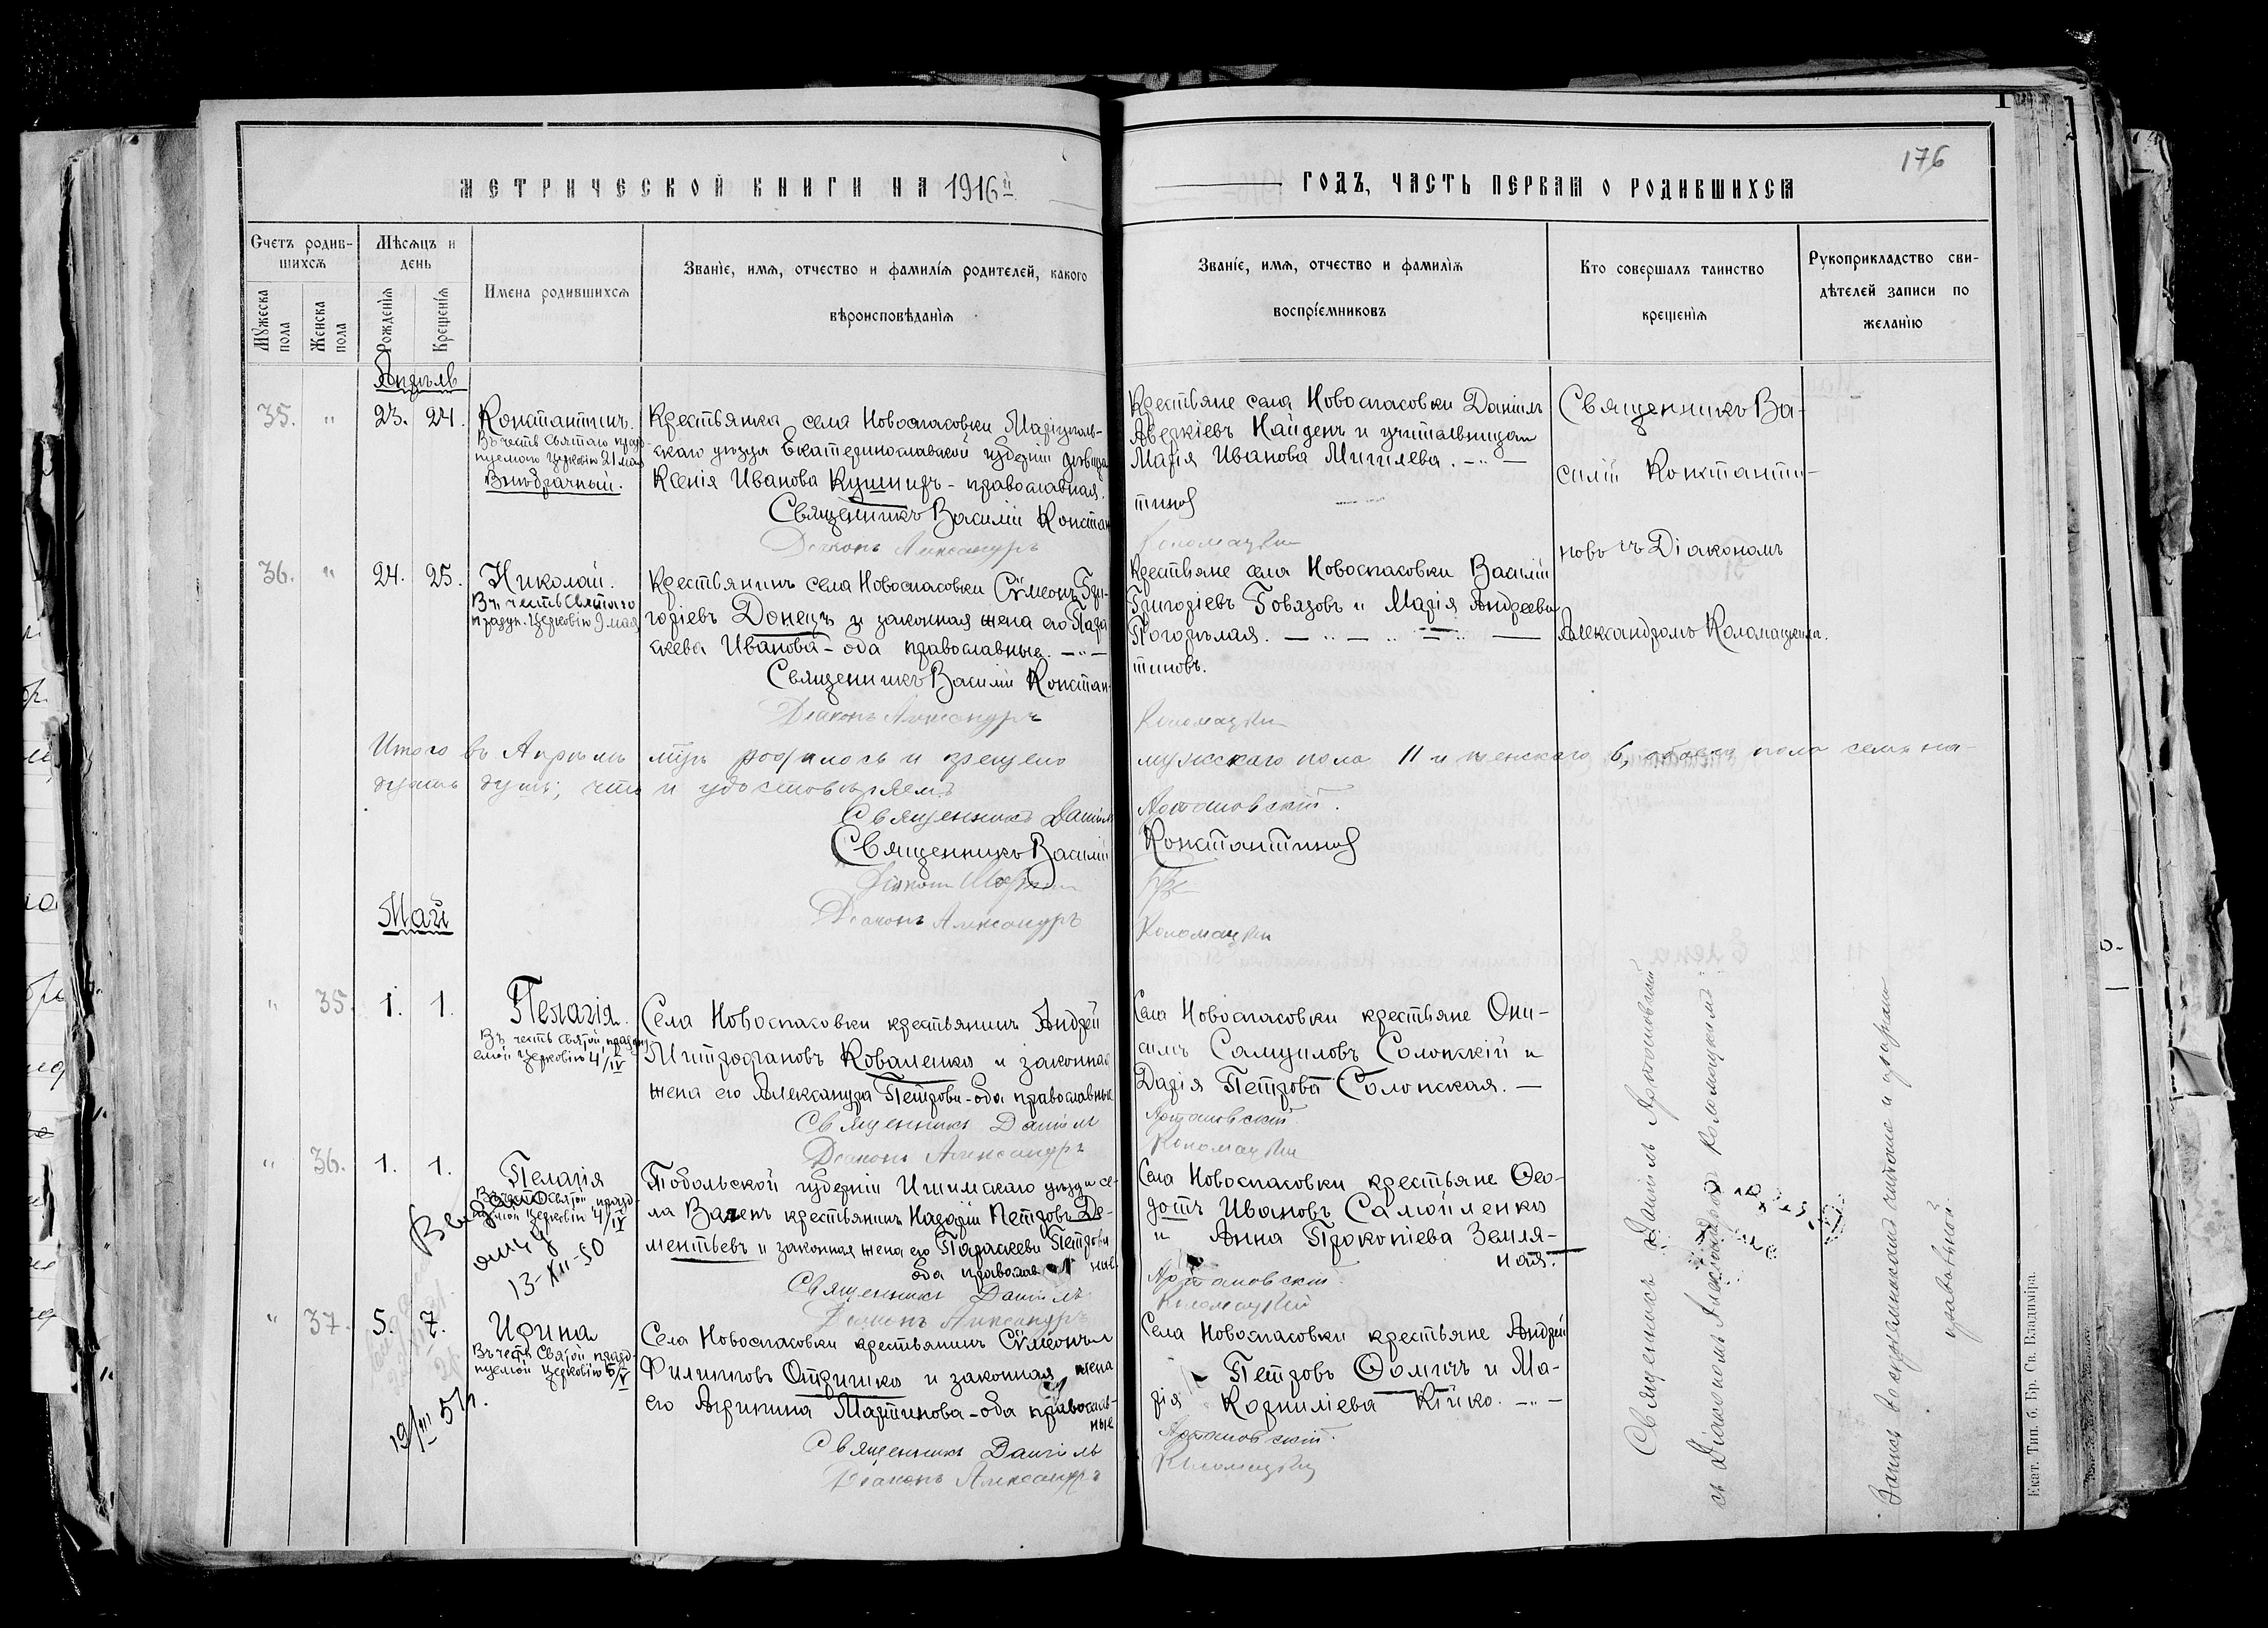 176
МЕТРИЧЕСКОЙ КНИГИ НА 1916й
ГОДЪ, ЧАСТЬ ПЕРВАЯ О РОДИВШИХСЯ
Счетъ родив-
шихся
Мѣсяцъ и
день
Мужеска
пола
Женска
пола
Рожденія
Крещенія
Имена родившихся
Званіе, имя, отчество и фамилія родителей, какого
вѣроисповѣданія
Званіе, имя, отчество и фамилія
воспріемниковъ
Кто совершалъ таинство
крещенія
Рукоприкладство сви-
дѣтелей записи по
желанію
Апрѣль
35. " 23. 24.
Константинъ.
Въ честь Святаго празд-
нуемаго Церковію 21 мая
Внѣбрачный.
Крестьянка села Новоспасовки Маріуполь-
скаго уѣзда Екатеринославской губерніи дѣвица
Ксенія Иванова Кушниръ - православная.
Священникъ Василій Констан
Діаконъ Александръ
Крестьяне села Новоспасовки Даніилъ
Аверкіевъ Найденъ и учительница
Марія Иванова Мигилева. - " -
тинов
Коломацкій
Священникъ Ва-
силій Константи-
новъ съ Діакономъ
Александромъ Коломацкимъ.
36. " 24. 25.
Николай.
Въ честь Святаго
праздн. Церковію 9 мая
Крестьянинъ села Новоспасовки Сѵмеонъ Гри-
горіевъ Донецъ и законная жена его Пара
скева Иванова - оба православные. - " -
Священникъ Василій Констан-
Діаконъ Александръ
Крестьяне села Новоспасовки Василій
Григоріевъ Говязовъ и Марія Андреева
Погорѣлая. - " - " - " -
тиновъ.
Коломацкій
Итого въ Апрѣлѣ мцѣ родилось и крещено мужскаго пола 11 и женскаго 6, обоего пола семьна-
дцать душъ, что и удостовѣряемъ
Священникъ Даніилъ Артановскій.
Священникъ Василій Константинов
Діаконъ
Діаконъ Александръ Коломацкій
Май
" 35. 1. 1.
Пелагія.
Въ честь Святой праздну
емой Церковію 4/IV
Села Новоспасовки крестьянинъ Андрей
Митрофановъ Коваленко и законная
жена его Александра Петрова - оба православные
Священникъ Даніилъ
Діаконъ Александръ
Села Новоспасовки крестьяне Они-
симъ Самуиловъ Солонскій и
Дарія Петрова Солонская. -
Артановскій
Коломацкій
" 36. 1. 1.
Пелагія
Въ честь Святой празд-
нуемой Церковію 4/IV
13-XII-50
Тобольской губерніи Ишимскаго уѣзда се-
ла крестьянинъ Назарій Петровъ Де-
ментьевъ и законная жена его Параскева Петрова
оба православные
Священникъ Даніилъ
Діаконъ Александръ
Села Новоспасовки крестьяне Ѳео-
дотъ Ивановъ Самойленко
и Анна Прокопіева Земля-
ная.
Артановскій.
Коломацкій
" 37. 5. 7.
Ирина
Въ честь Святой праздн-
нуемой Церковію 5/V
19/III 57г.
Села Новоспасовки крестьянинъ Сѵмеонъ
Филипповъ Отришко и законная жена
его Агрипина Мартинова - оба православ-
ные
Священникъ Даніилъ
Діаконъ Александръ
Села Новоспасовки крестьяне Андрей
Петровъ Ѳомичъ и Ма-
рія Корниліева Кійко. - " -
Артановскій.
Коломацкій
Священникъ Даніилъ Артановскій
съ Діакономъ Александромъ Коломацкимъ
Запись воспріемниками читана и признано
правильной.
Екат. Тип. б. Бр. Св. Владиміра.